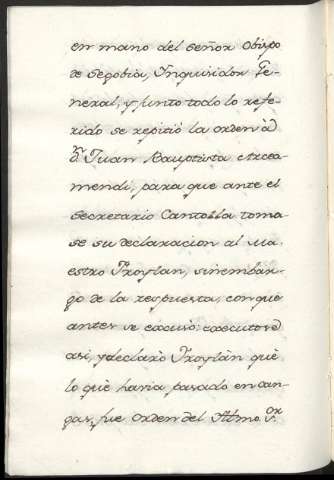 en mano del señor Obispo
de Segobia, Inquisidor Ge-
neral, y junto todo lo refe-
rido se repitiò la orden à
Dn. Juan Bauptista Arcea-
mendi, para que ante el
Secretario Cantolla toma-
se su declaracion al Ma-
estro Froylan, sin embar-
go de la respuesta, conque
antes se excusò: executose
asi, y declarò Froylàn què
lo què havia pasado en can-
gas, fue orden del Illmo. Sor.